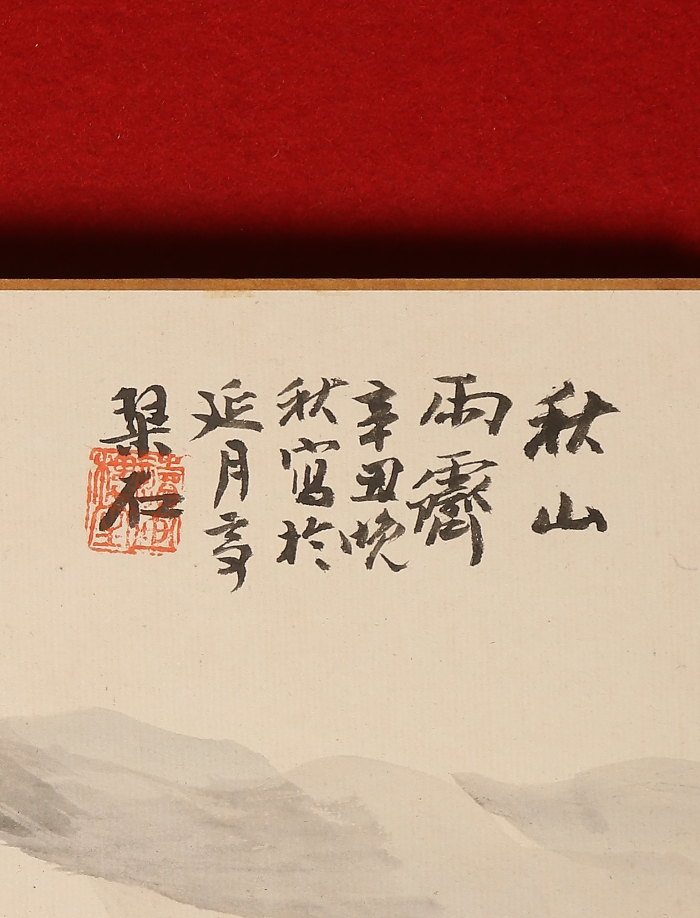 秋山
雨霽
辛丑晩
秋寫於
延月亭
琹石